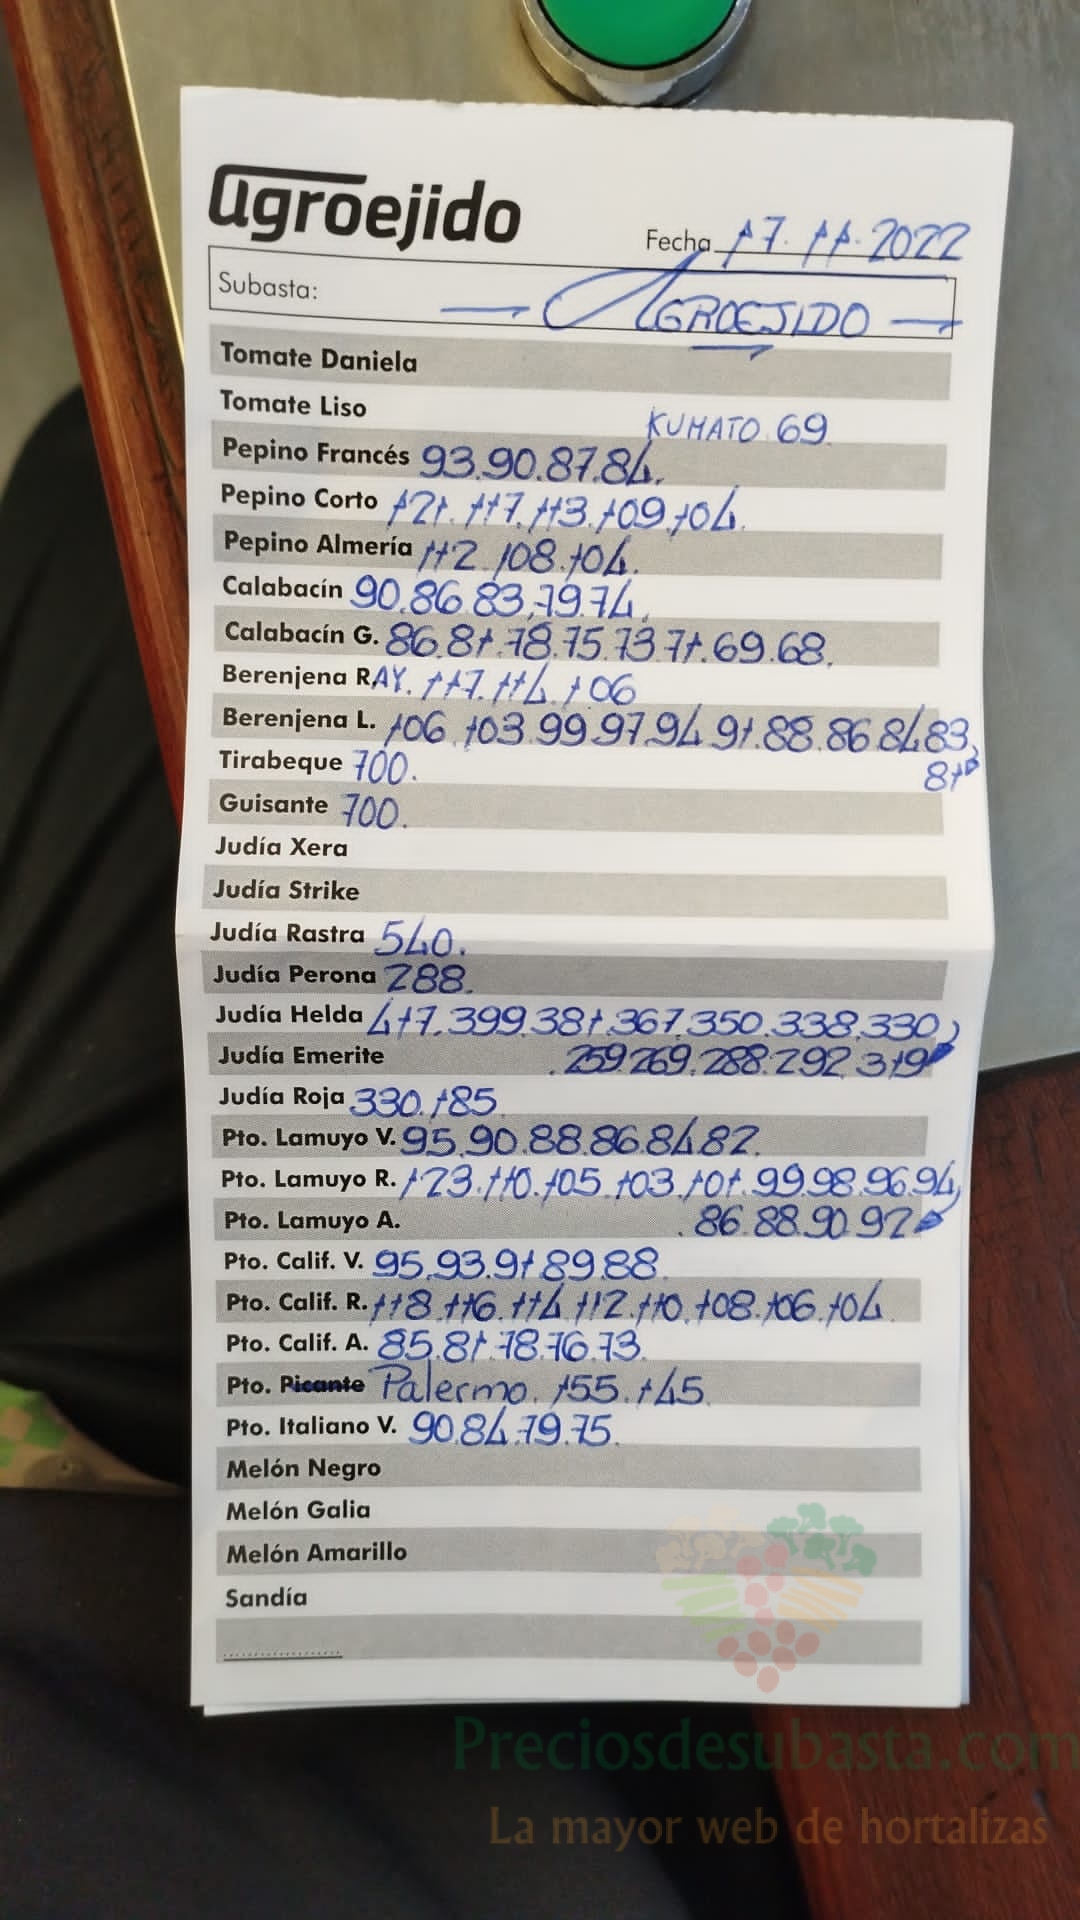 agroejido
Fecha 17.11.2022
Subasta: AGROEJIDO
Tomate Daniela
Tomate Liso KUMATO 69
Pepino Francés 93.90.87.84.
Pepino Corto 121.117.113.109.104.
Pepino Almería 112.108.104.
Calabacín 90.86.83.79.74.
Calabacín G. 86.81.78.75.73.71.69.68.
Berenjena RAY. 117.114.106
Berenjena L. 106.103.99.97.94.91.88.86.84.83,
81
Tirabeque 700.
Guisante 700.
Judía Xera
Judía Strike
Judía Rastra 540.
Judía Perona 288.
Judía Helda 417.399.381.367.350.338.330,
Judía Emerite .259.269.288.292.319
Judía Roja 330.185
Pto. Lamuyo V. 95.90.88.86.84.82.
Pto. Lamuyo R. 123.110.105.103.101.99.98.96.94,
Pto. Lamuyo A. .86.88.90.92
Pto. Calif. V. 95.93.91.89.88.
Pto. Calif. R. 118.116.114.112.110.108.106.104
Pto. Calif. A. 85.81.78.76.73.
Pto. Picante Palermo. 155.145.
Pto. Italiano V. 90.84.79.75.
Melón Negro
Melón Galia
Melón Amarillo
Sandía
Preciosdesubasta.com
La mayor web de hortalizas